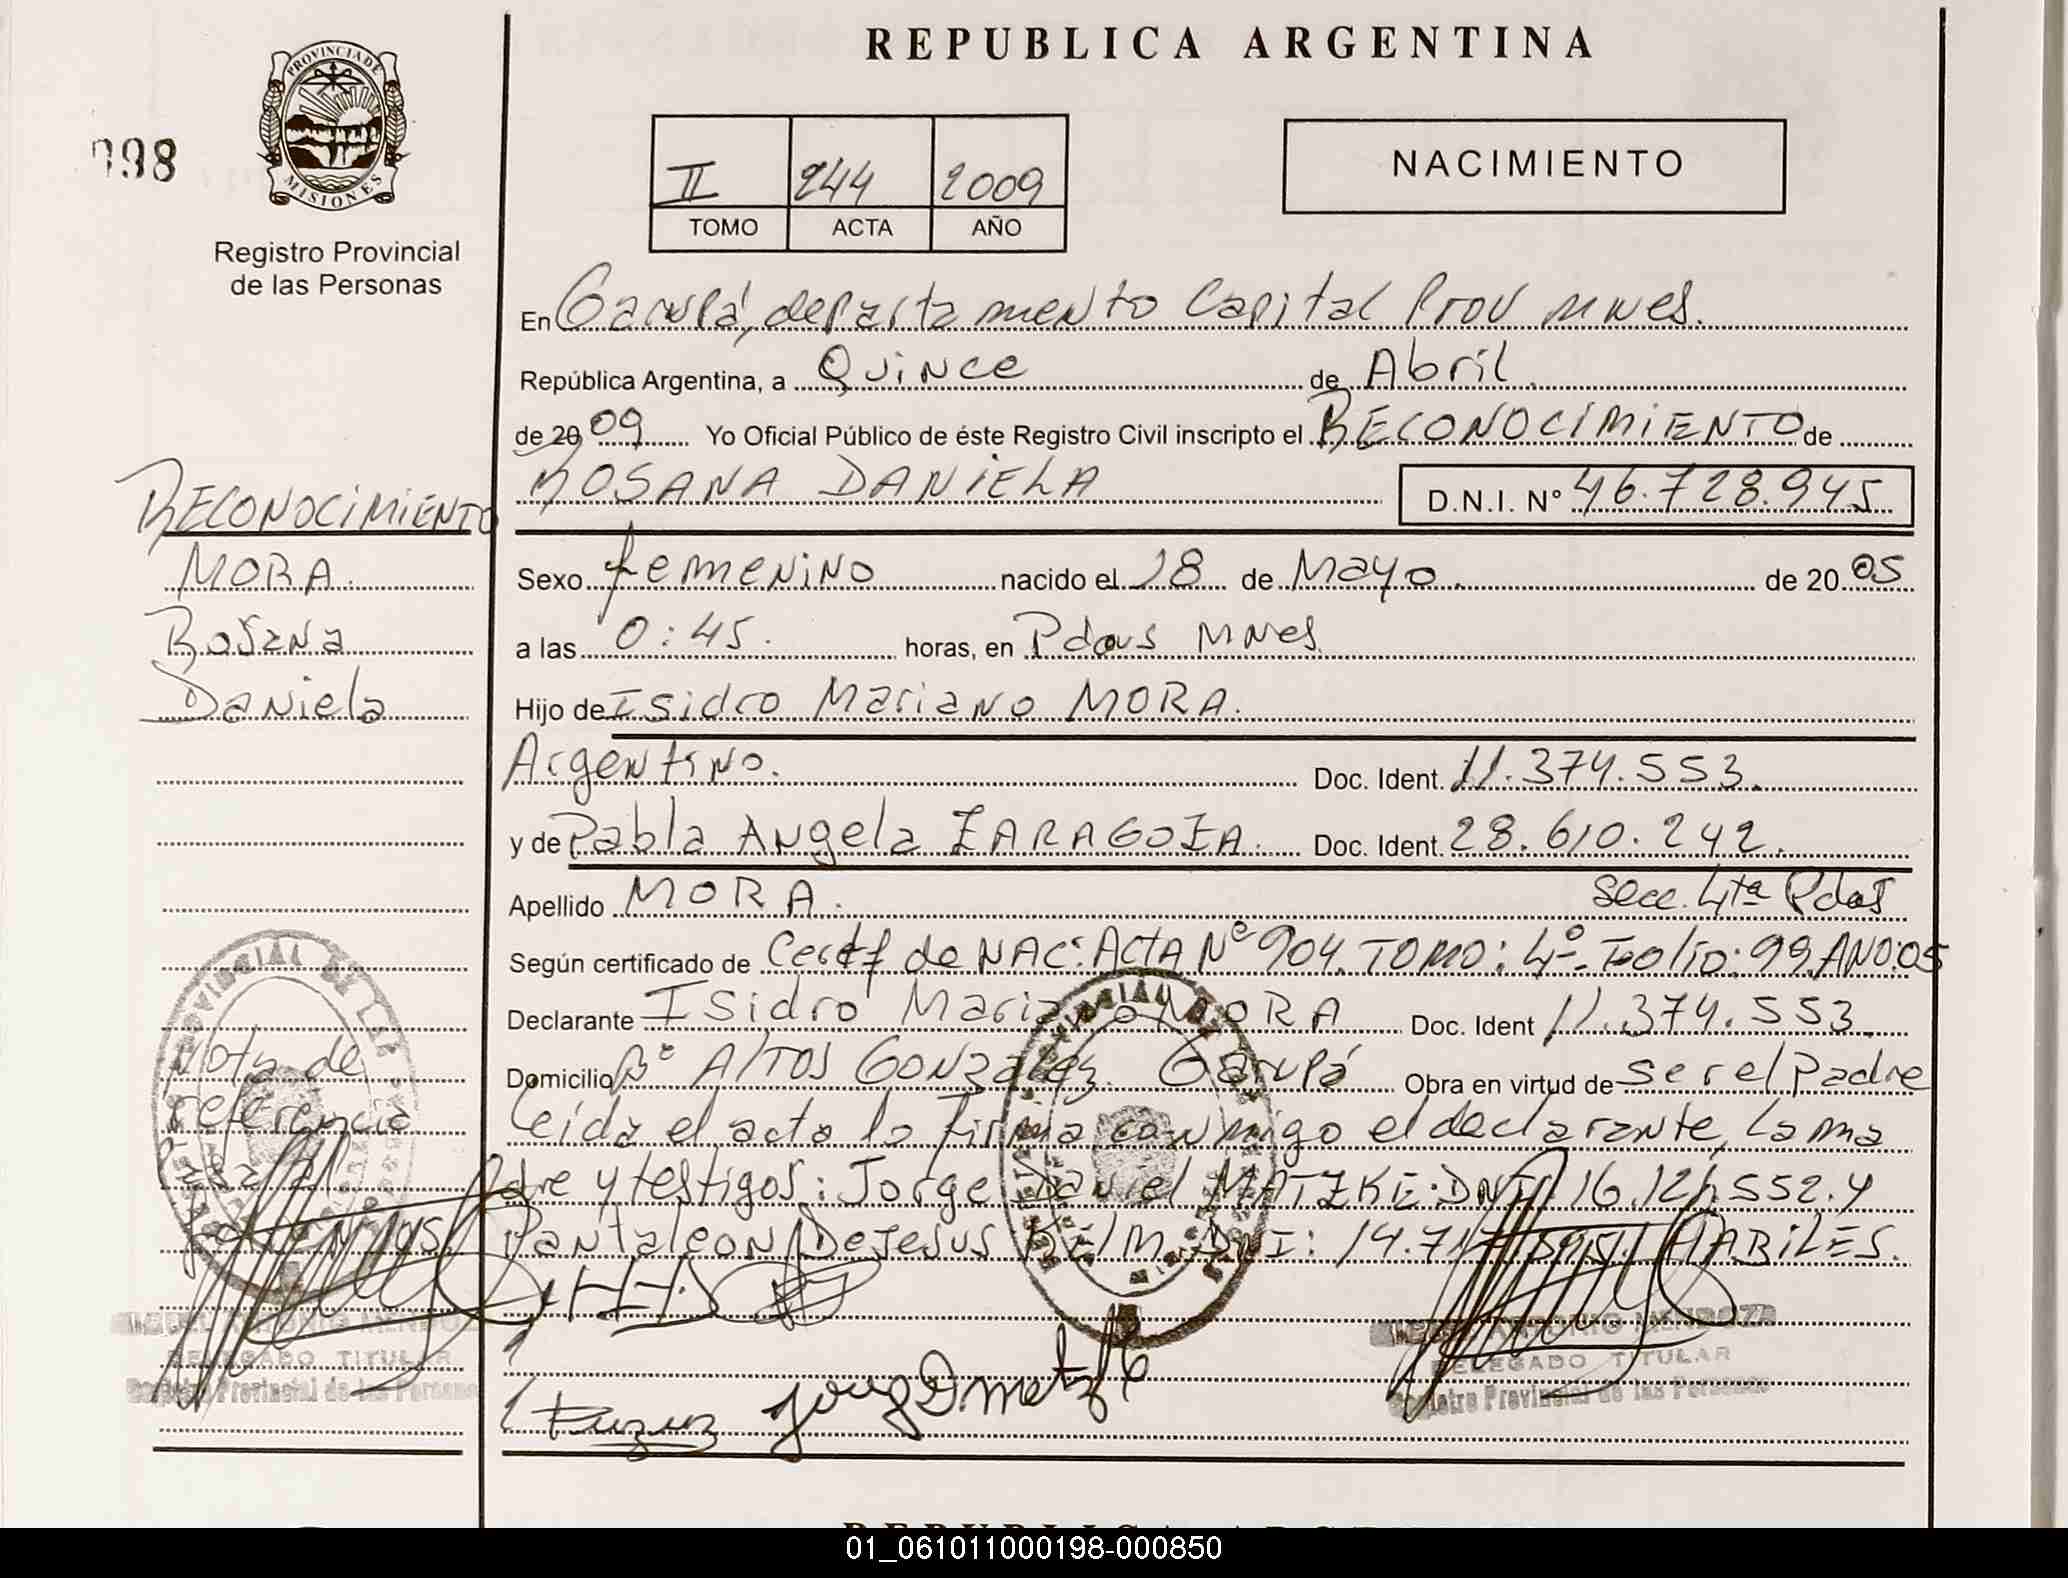 REPUBLICA ARGENTINA
PROVINCIA DE
MISIONES
998
Registro Provincial
de las Personas
II 244 2009
TOMO ACTA AÑO
NACIMIENTO
En Garupá, departamento Capital Prov Mnes.
República Argentina, a Quince de Abril.
de 2009 Yo Oficial Público de éste Registro Civil inscripto el RECONOCIMIENTO de
ROSANA DANIELA D.N.I. Nº 46.728.945
RECONOCIMIENTO
MORA.
Rosana
Daniela
Sexo femenino nacido el 28 de Mayo. de 2005
a las 0:45. horas, en Pdas Mnes
Hijo de Isidro Mariano MORA.
Argentino. Doc. Ident. 11.374.553.
y de Pabla Angela ZARAGOZA. Doc. Ident. 28.610.242.
Apellido MORA. Secc. 4ta Pdas
Según certificado de Certf de NAC: ActA Nº 904. TOMO: 4º. Folio: 99. AÑO:05
Declarante Isidro Mariano MORA Doc. Ident 11.374.553.
Domicilio Bº Altos Gonzalez. Garupá Obra en virtud de ser el Padre
Leida el acta la firma conmigo el declarante, la ma
dre y testigos: Jorge Daniel MATZKE. DNI. 16.121.552. y
Pantaleon DeJesus KEIM. DNI: 14.7 HABILES.
Nota de
referencia
Jorge D. Matzke
ANTONIO MENDOZA
DELEGADO TITULAR
Registro Provincial de las Personas
ANTONIO MENDOZA
DELEGADO TITULAR
Registro Provincial de las Personas
01_061011000198-000850